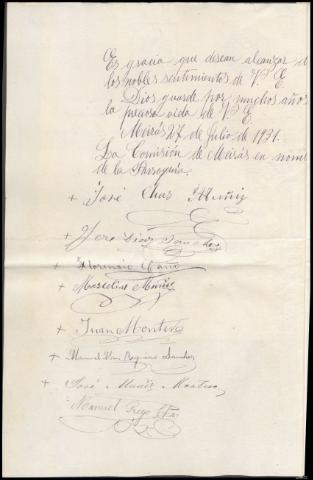 Es gracia que desean alcanzar d
los nobles sentimientos de V. E.
Dios guarde por muchos años
la preciosa vida de V. E.
Meirás 27 de Julio de 1931.
La Comisión de Meirás en nom
de la Parroquia.
+ José Chas Muñiz
+
+ Florencio
+ Marcelino Muñiz
+ Juan Montero
+ Manuel Sanchez
+ José Muñiz Montero
Manuel